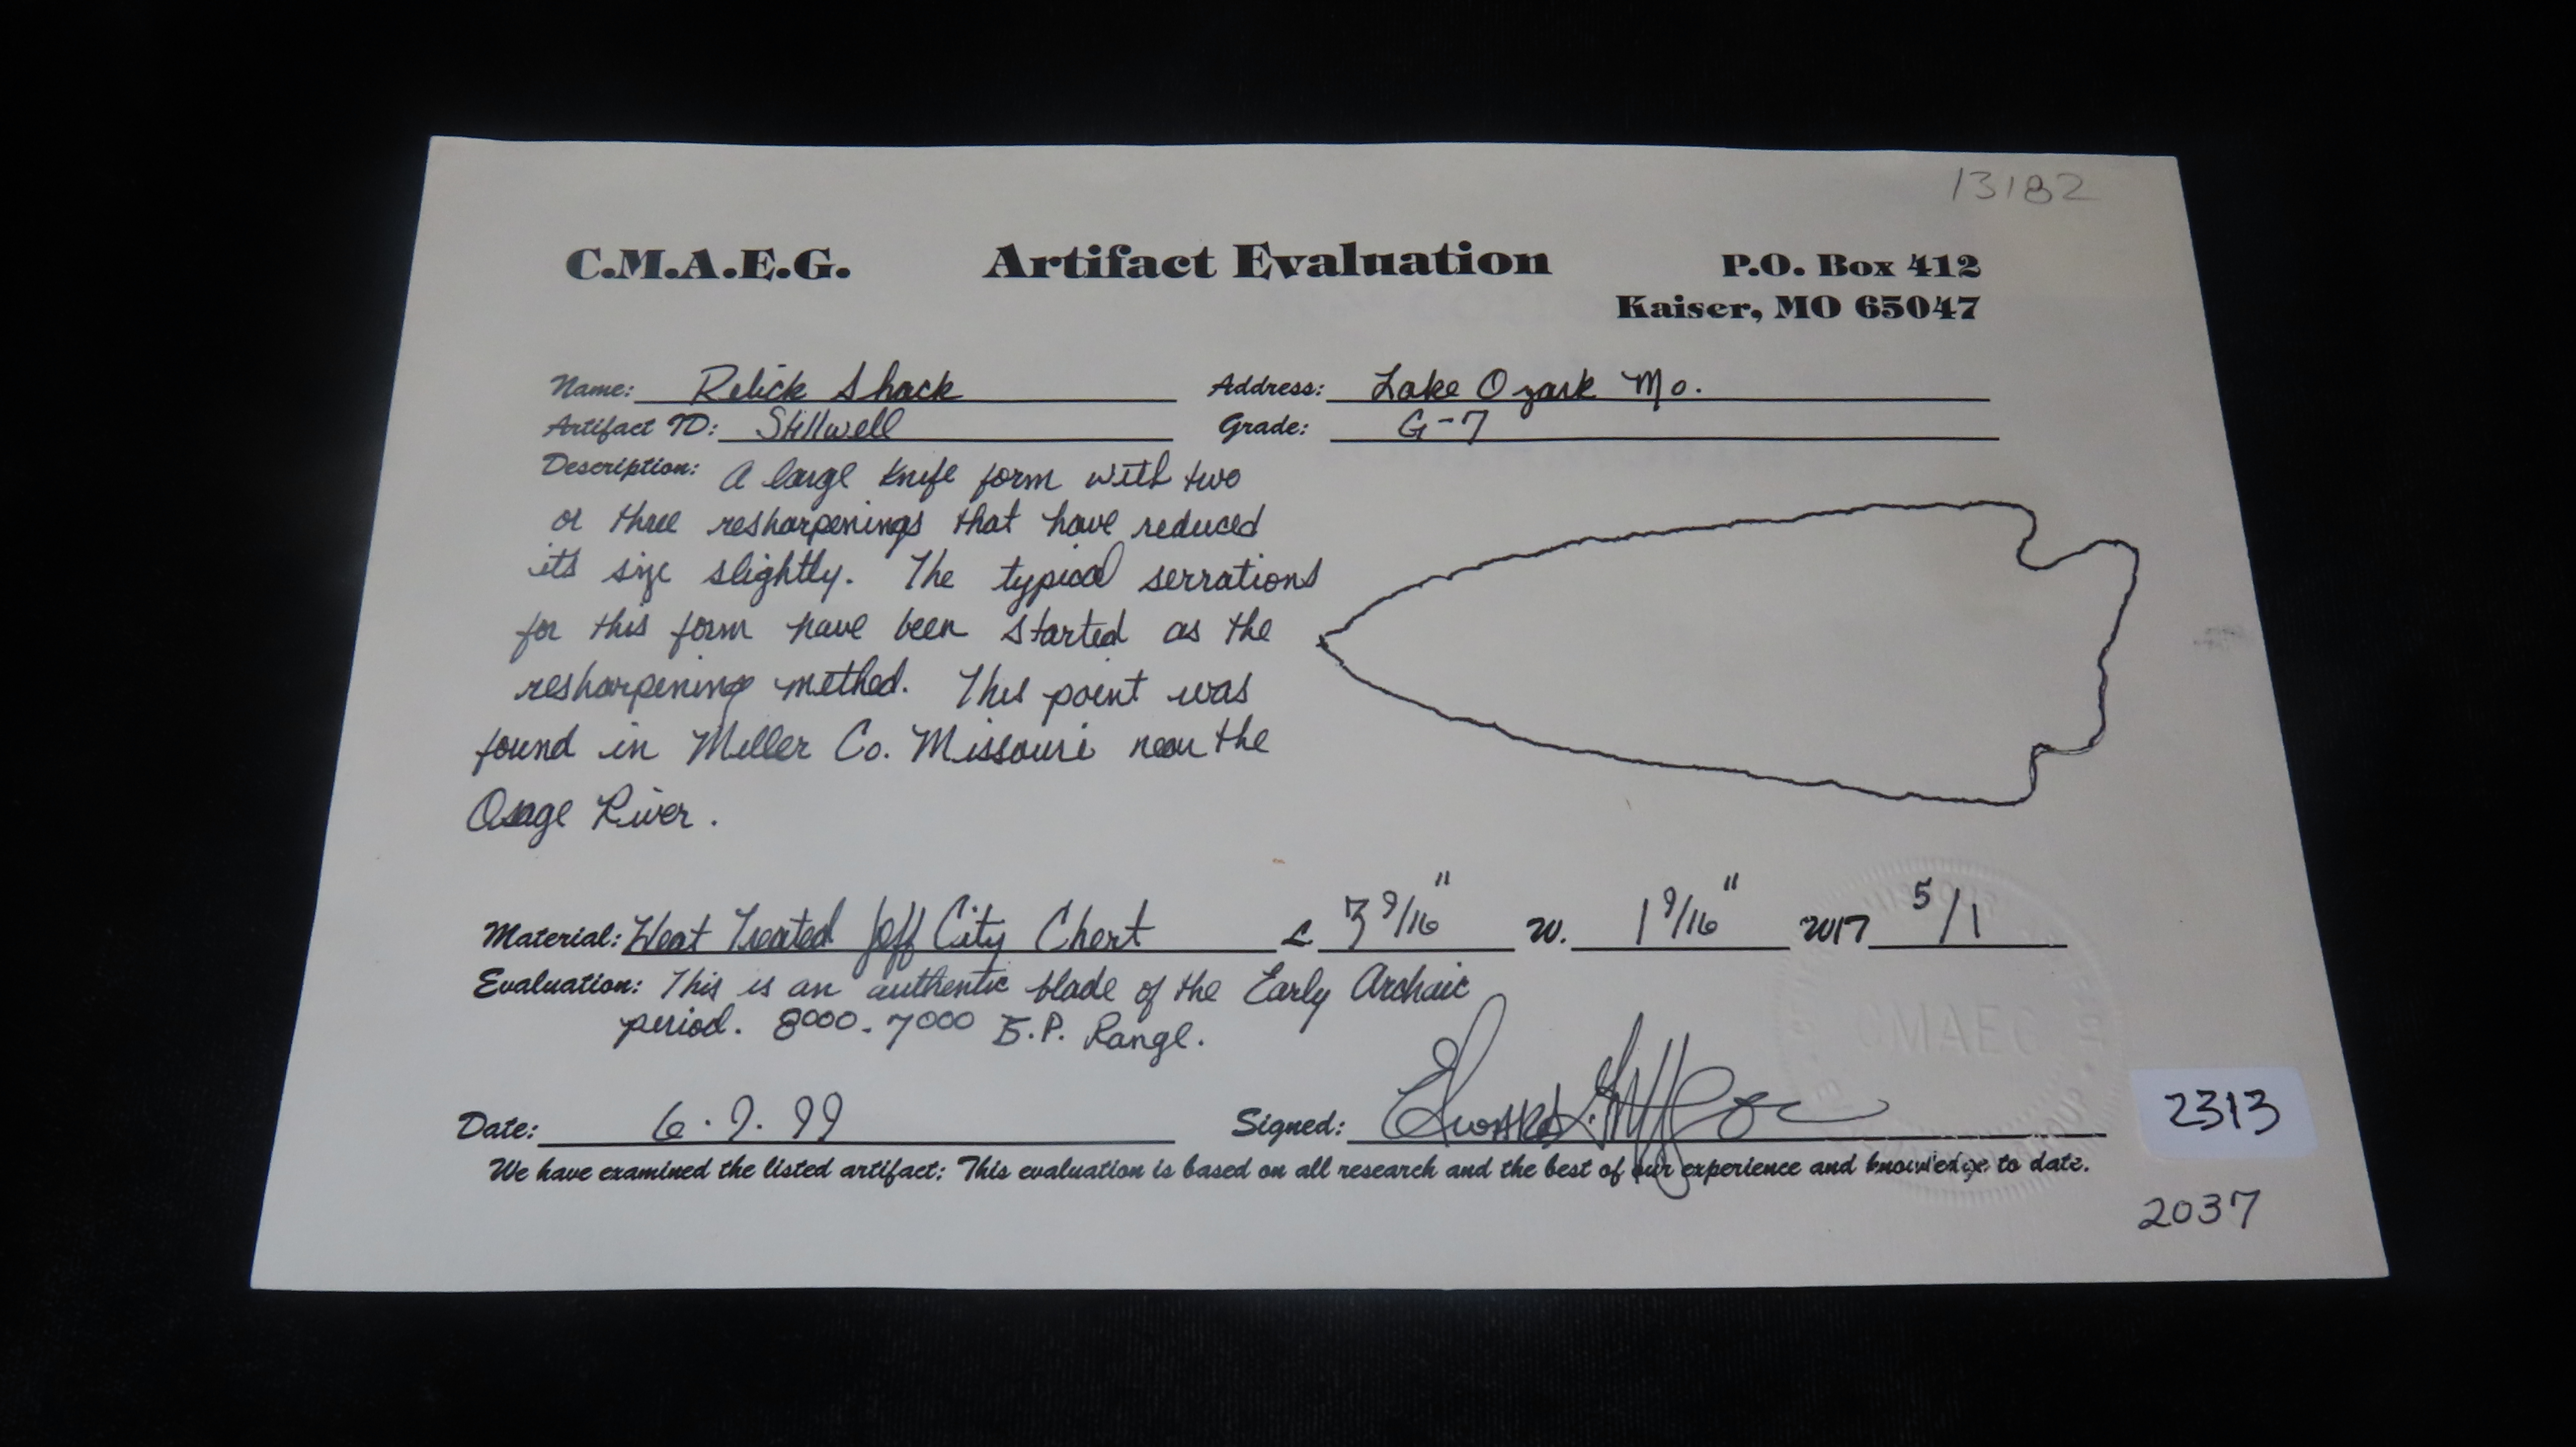 13182
C.M.A.E.G. Artifact Evaluation P.O. Box 412
Kaiser, MO 65047
Name: Relick Shack Address: Lake Ozark Mo.
Artifact ID: Stillwell Grade: G-7
Description: A large knife form with two
or three resharpenings that have reduced
its size slightly. The typical serrations
for this form have been started as the
resharpening method. This point was
found in Miller Co. Missouri near the
Osage River.
Material: Heat Treated Jeff City Chert L 3 9/16" W. 1 9/16" W/T 5/1
Evaluation: This is an authentic blade of the Early Archaic
period. 8000-7000 B.P. Range.
CMAEG
Date: 6.9.99 Signed:
We have examined the listed artifact: This evaluation is based on all research and the best of our experience and knowledge to date.
2313
2037